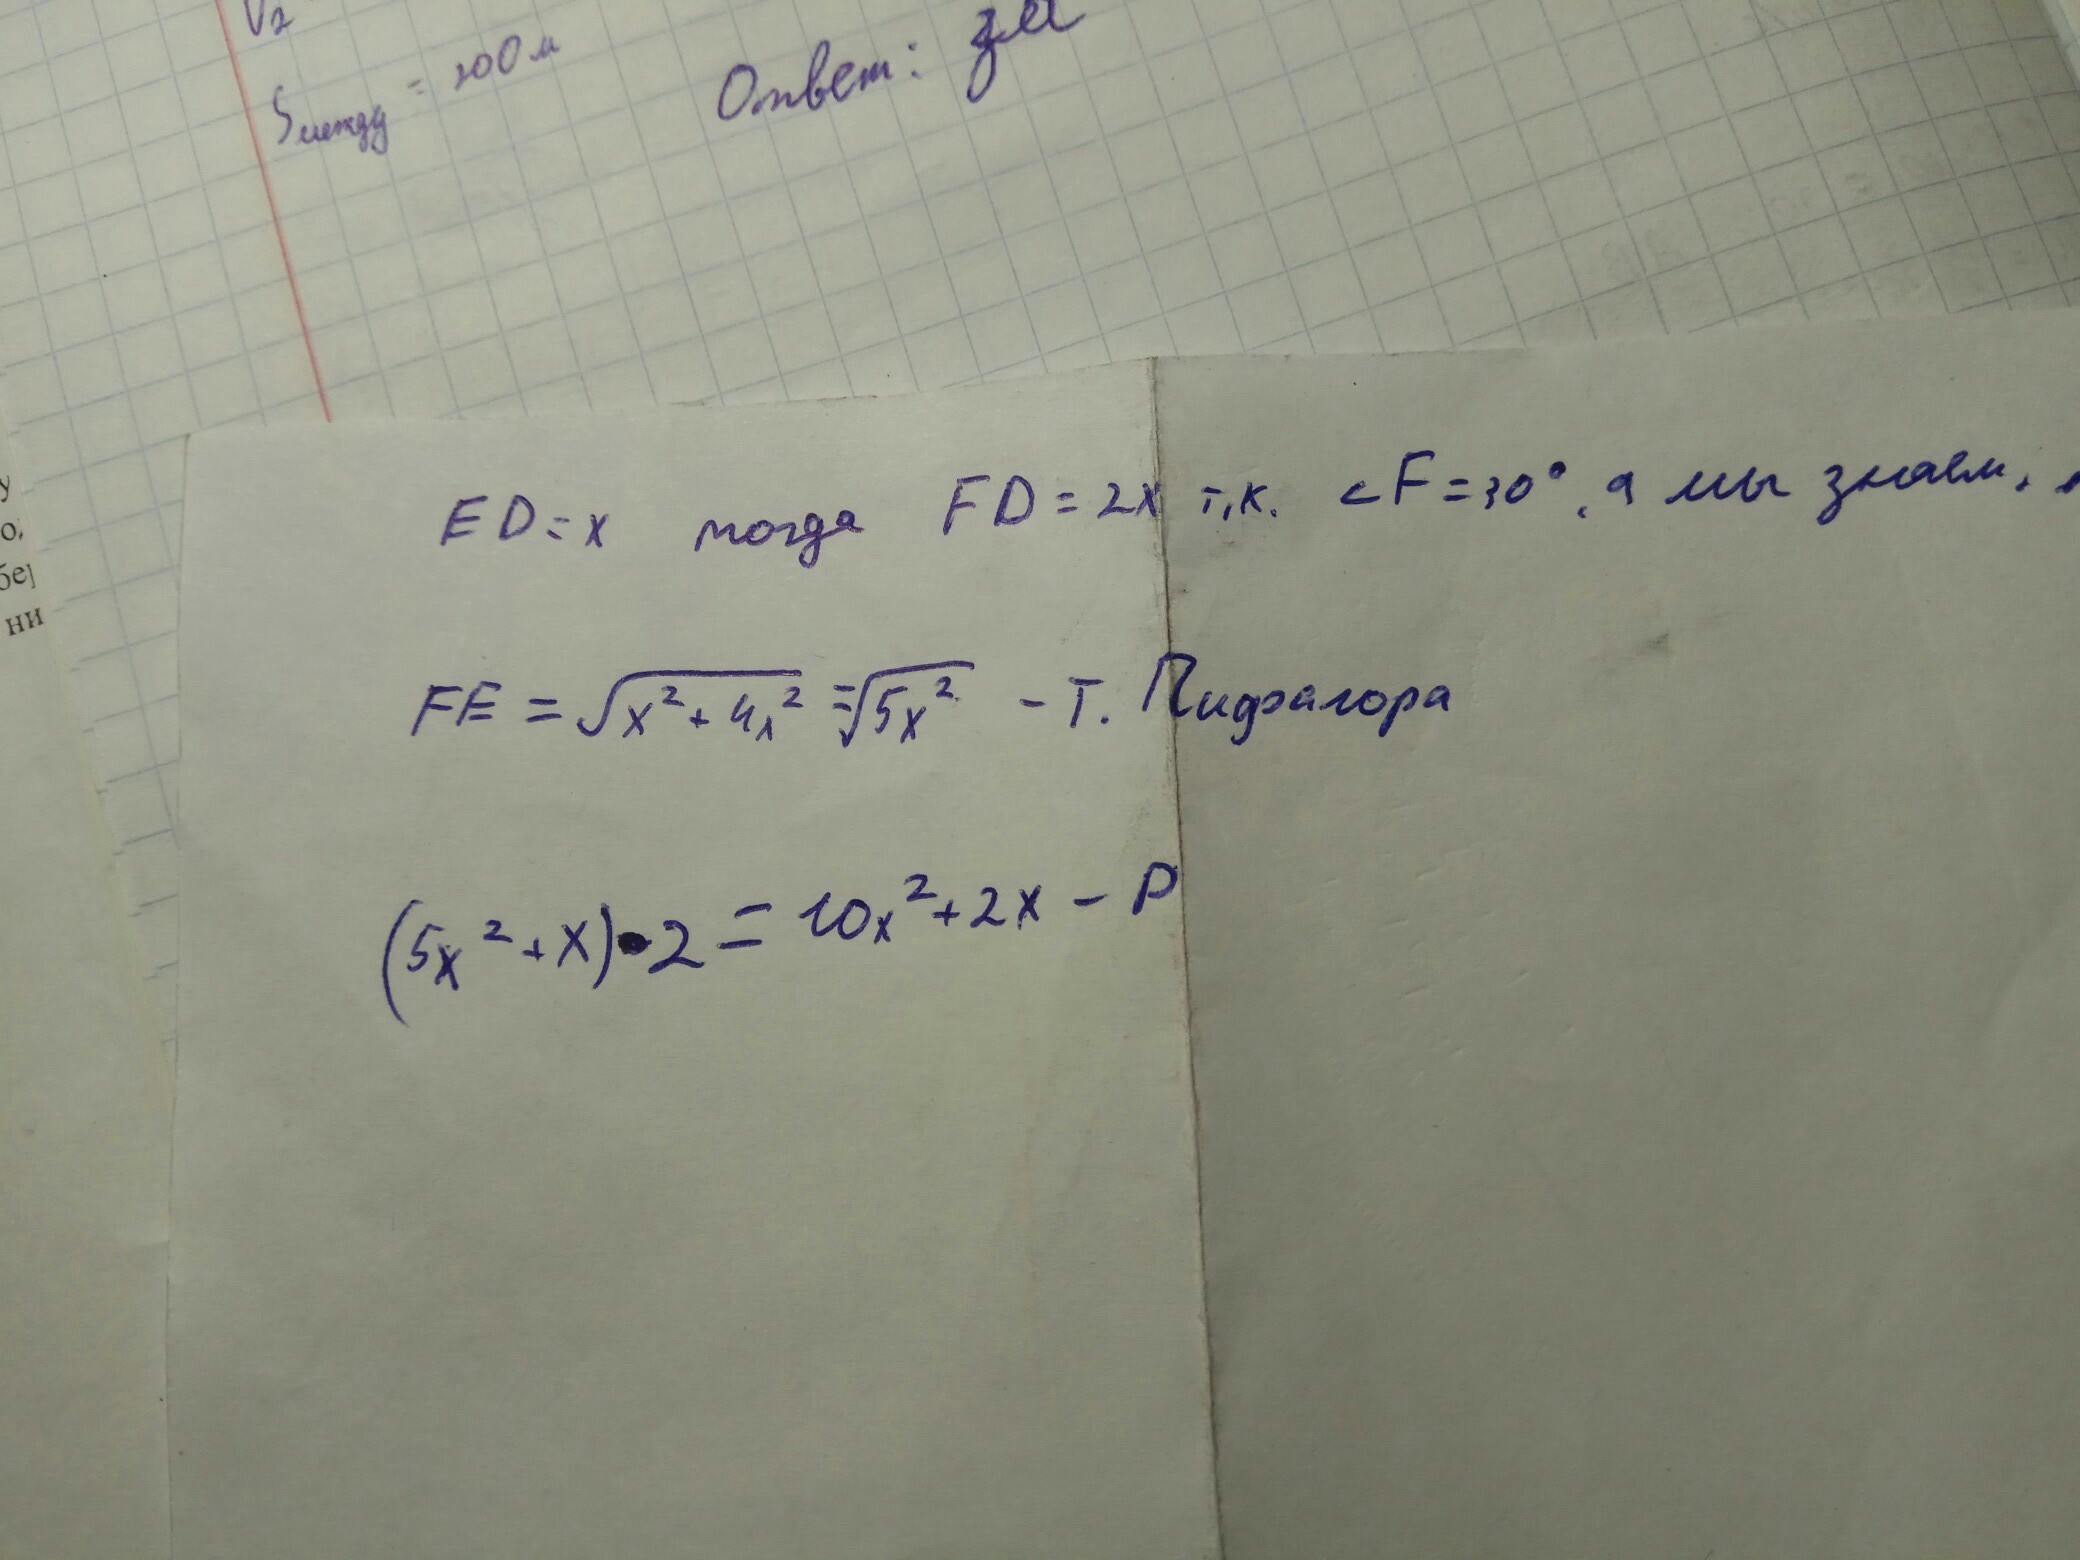 V₂
Sмежду = 100 м
Ответ: за
у
о;
бе
ни
ED = x тогда FD = 2x т.к. <F = 30°, а мы знаем,
FE = √x² + 4x² = √5x² - Т. Пифагора
(5x² + x) • 2 = 10x² + 2x - P